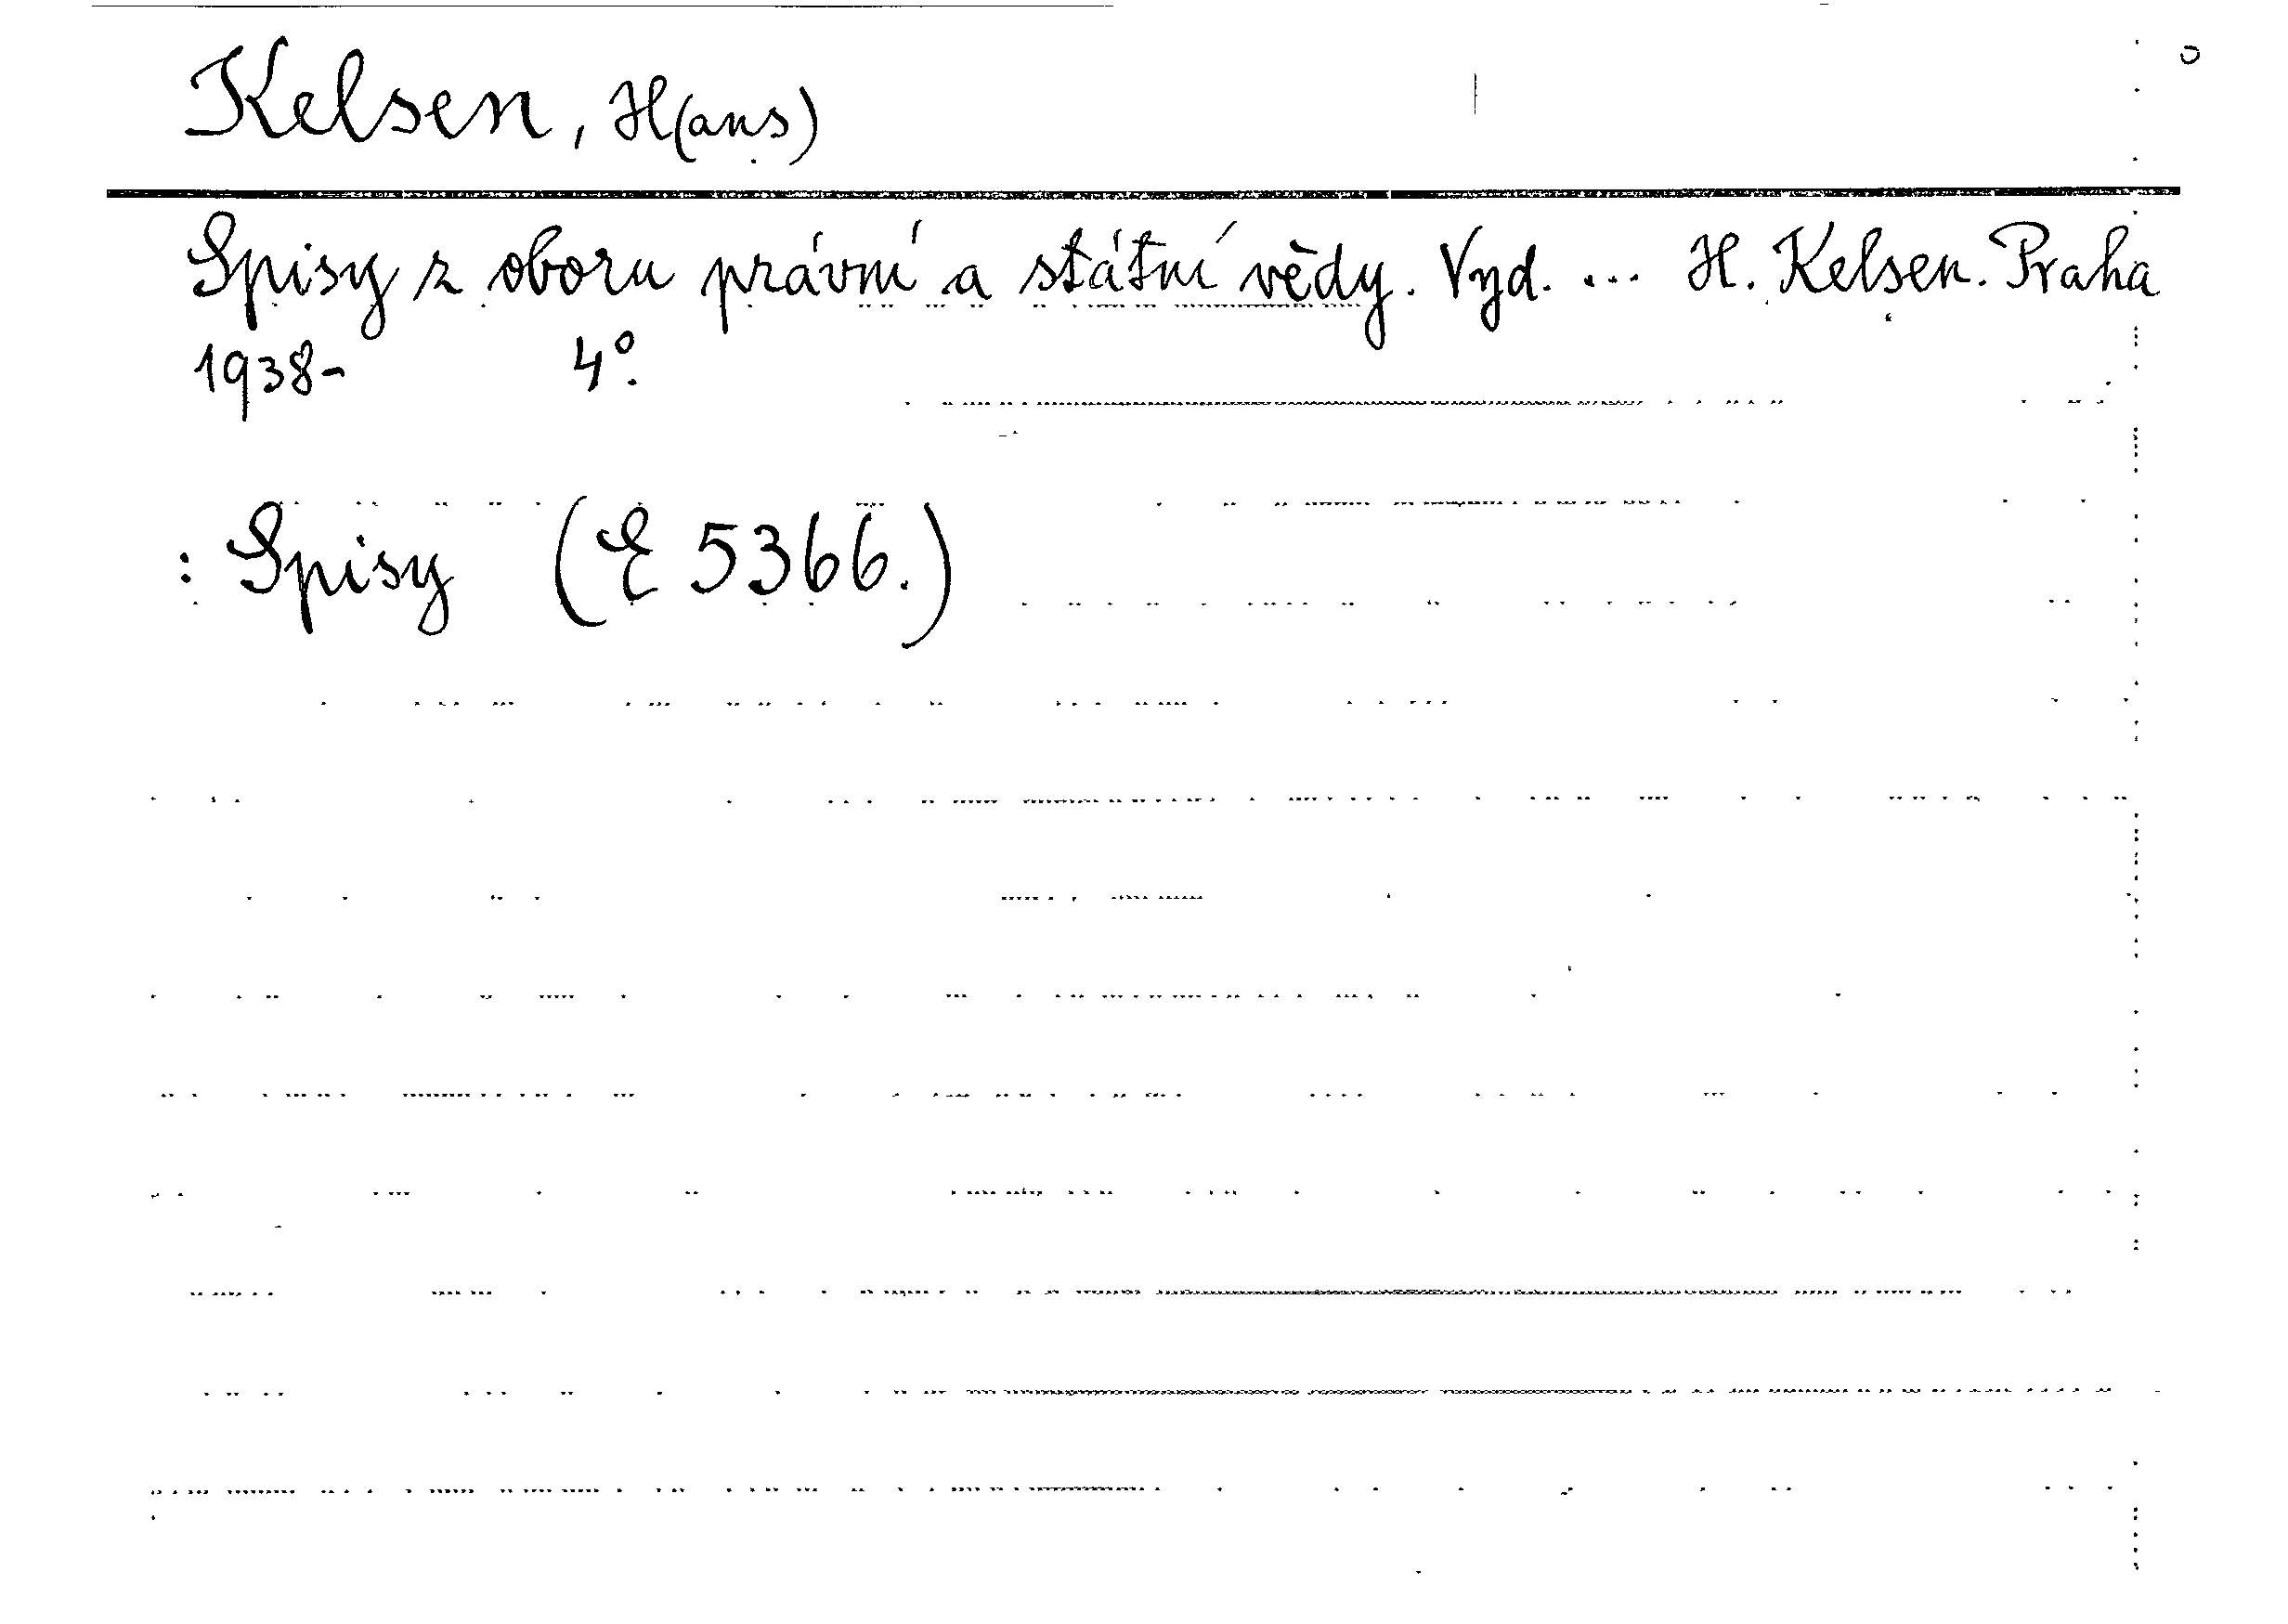 Kelsen, H(ans)
Spisy z oboru právní a státní vědy. Vyd. ... H. Kelsen. Praha
1938- 4°.
: Spisy (E 5366.)